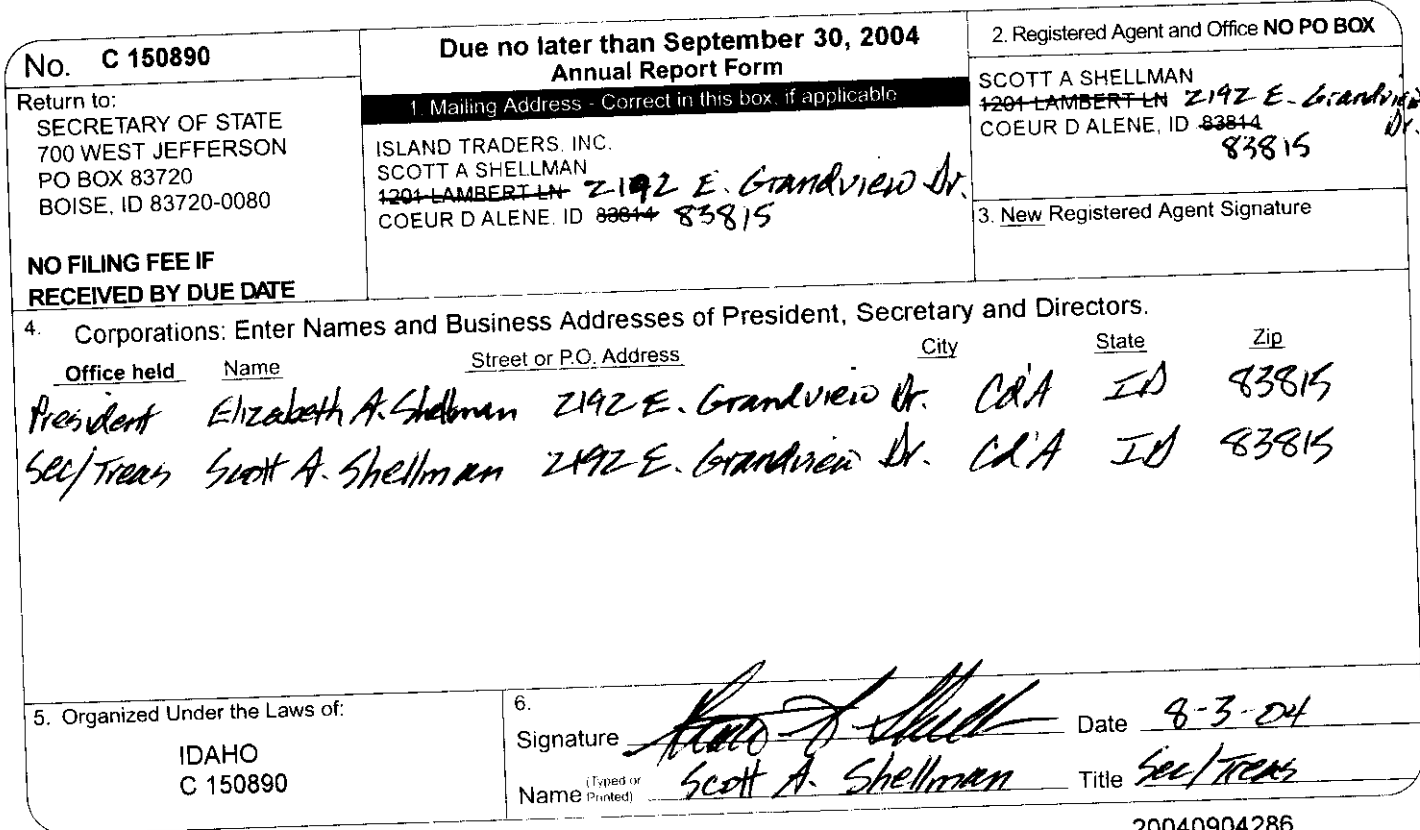 No. C 150890
Return to:
SECRETARY OF STATE
700 WEST JEFFERSON
PO BOX 83720
BOISE, ID 83720-0080
NO FILING FEE IF
RECEIVED BY DUE DATE
Due no later than September 30, 2004
Annual Report Form
1. Mailing Address - Correct in this box, if applicable
ISLAND TRADERS, INC.
SCOTT A SHELLMAN
1201 LAMBERT LN 2192 E. Grandview Dr.
COEUR D ALENE, ID 83814 83815
2. Registered Agent and Office NO PO BOX
SCOTT A SHELLMAN
1201 LAMBERT LN 2192 E. Grandview
COEUR D ALENE, ID 83814 Dr.
83815
3. New Registered Agent Signature
4. Corporations: Enter Names and Business Addresses of President, Secretary and Directors.
Office held Name Street or P.O. Address City State Zip
President Elizabeth A. Shellman 2192 E. Grandview Dr. Cd'A ID 83815
Sec/Treas Scott A. Shellman 2192 E. Grandview Dr. Cd'A ID 83815
5. Organized Under the Laws of:
IDAHO
C 150890
6.
Signature Date 8-3-04
Name (Typed or Printed) Scott A. Shellman Title Sec/Treas
20040904286